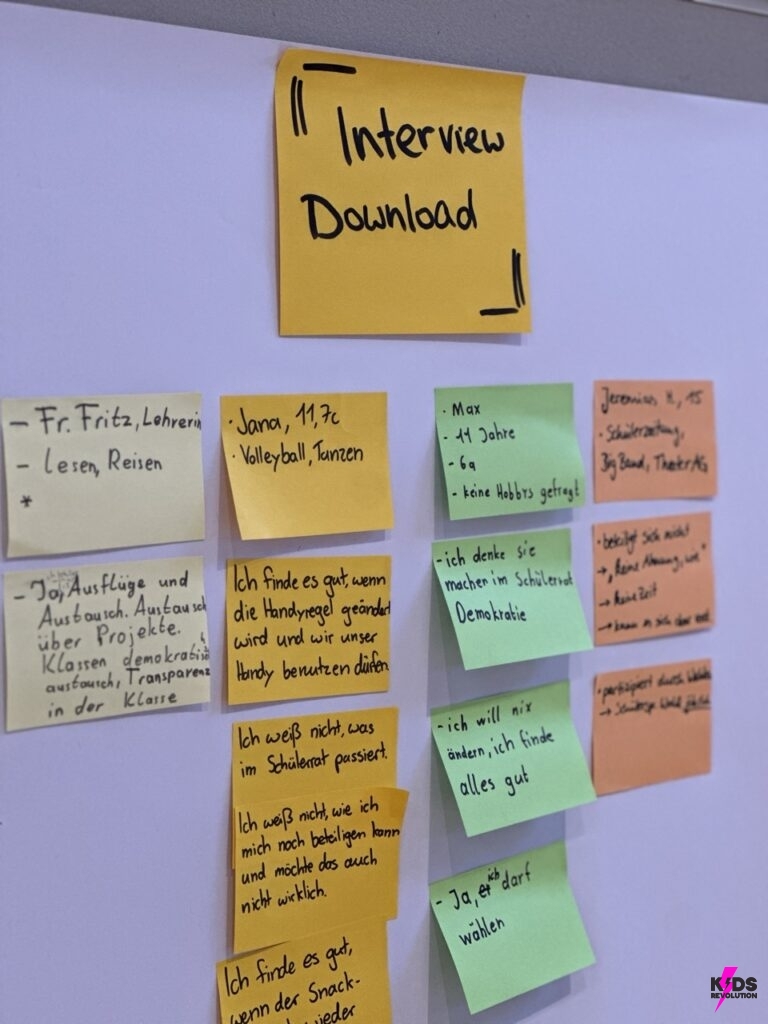 Interview
Download
- Fr. Fritz, Lehrerin
- Lesen, Reisen
*
- Ja, Ausflüge und
Austausch. Austausch
über Projekte.
Klassen demokratisch
austausch, Transparenz
in der Klasse
· Jana, 11, 7c
· Volleyball, Tanzen
Ich finde es gut, wenn
die Handyregel geändert
wird und wir unser
Handy benutzen dürfen.
Ich weiß nicht, was
im Schülerrat passiert.
Ich weiß nicht, wie ich
mich noch beteiligen kann
und möchte das auch
nicht wirklich.
Ich finde es gut,
wenn der Snack-
wieder
· Max
- 11 Jahre
- 6a
- keine Hobbys gefragt
- ich denke sie
machen im Schülerrat
Demokratie
- ich will nix
ändern, ich finde
alles gut
- Ja, ich darf
wählen
Jeremias H., 15
· Schülerzeitung,
Big Band, Theater AG
· beteiligt sich nicht
→ "Keine Ahnung,
→ Keine Zeit
→ kann es sich aber
· partizipiert durch
→
KIDS
REVOLUTION